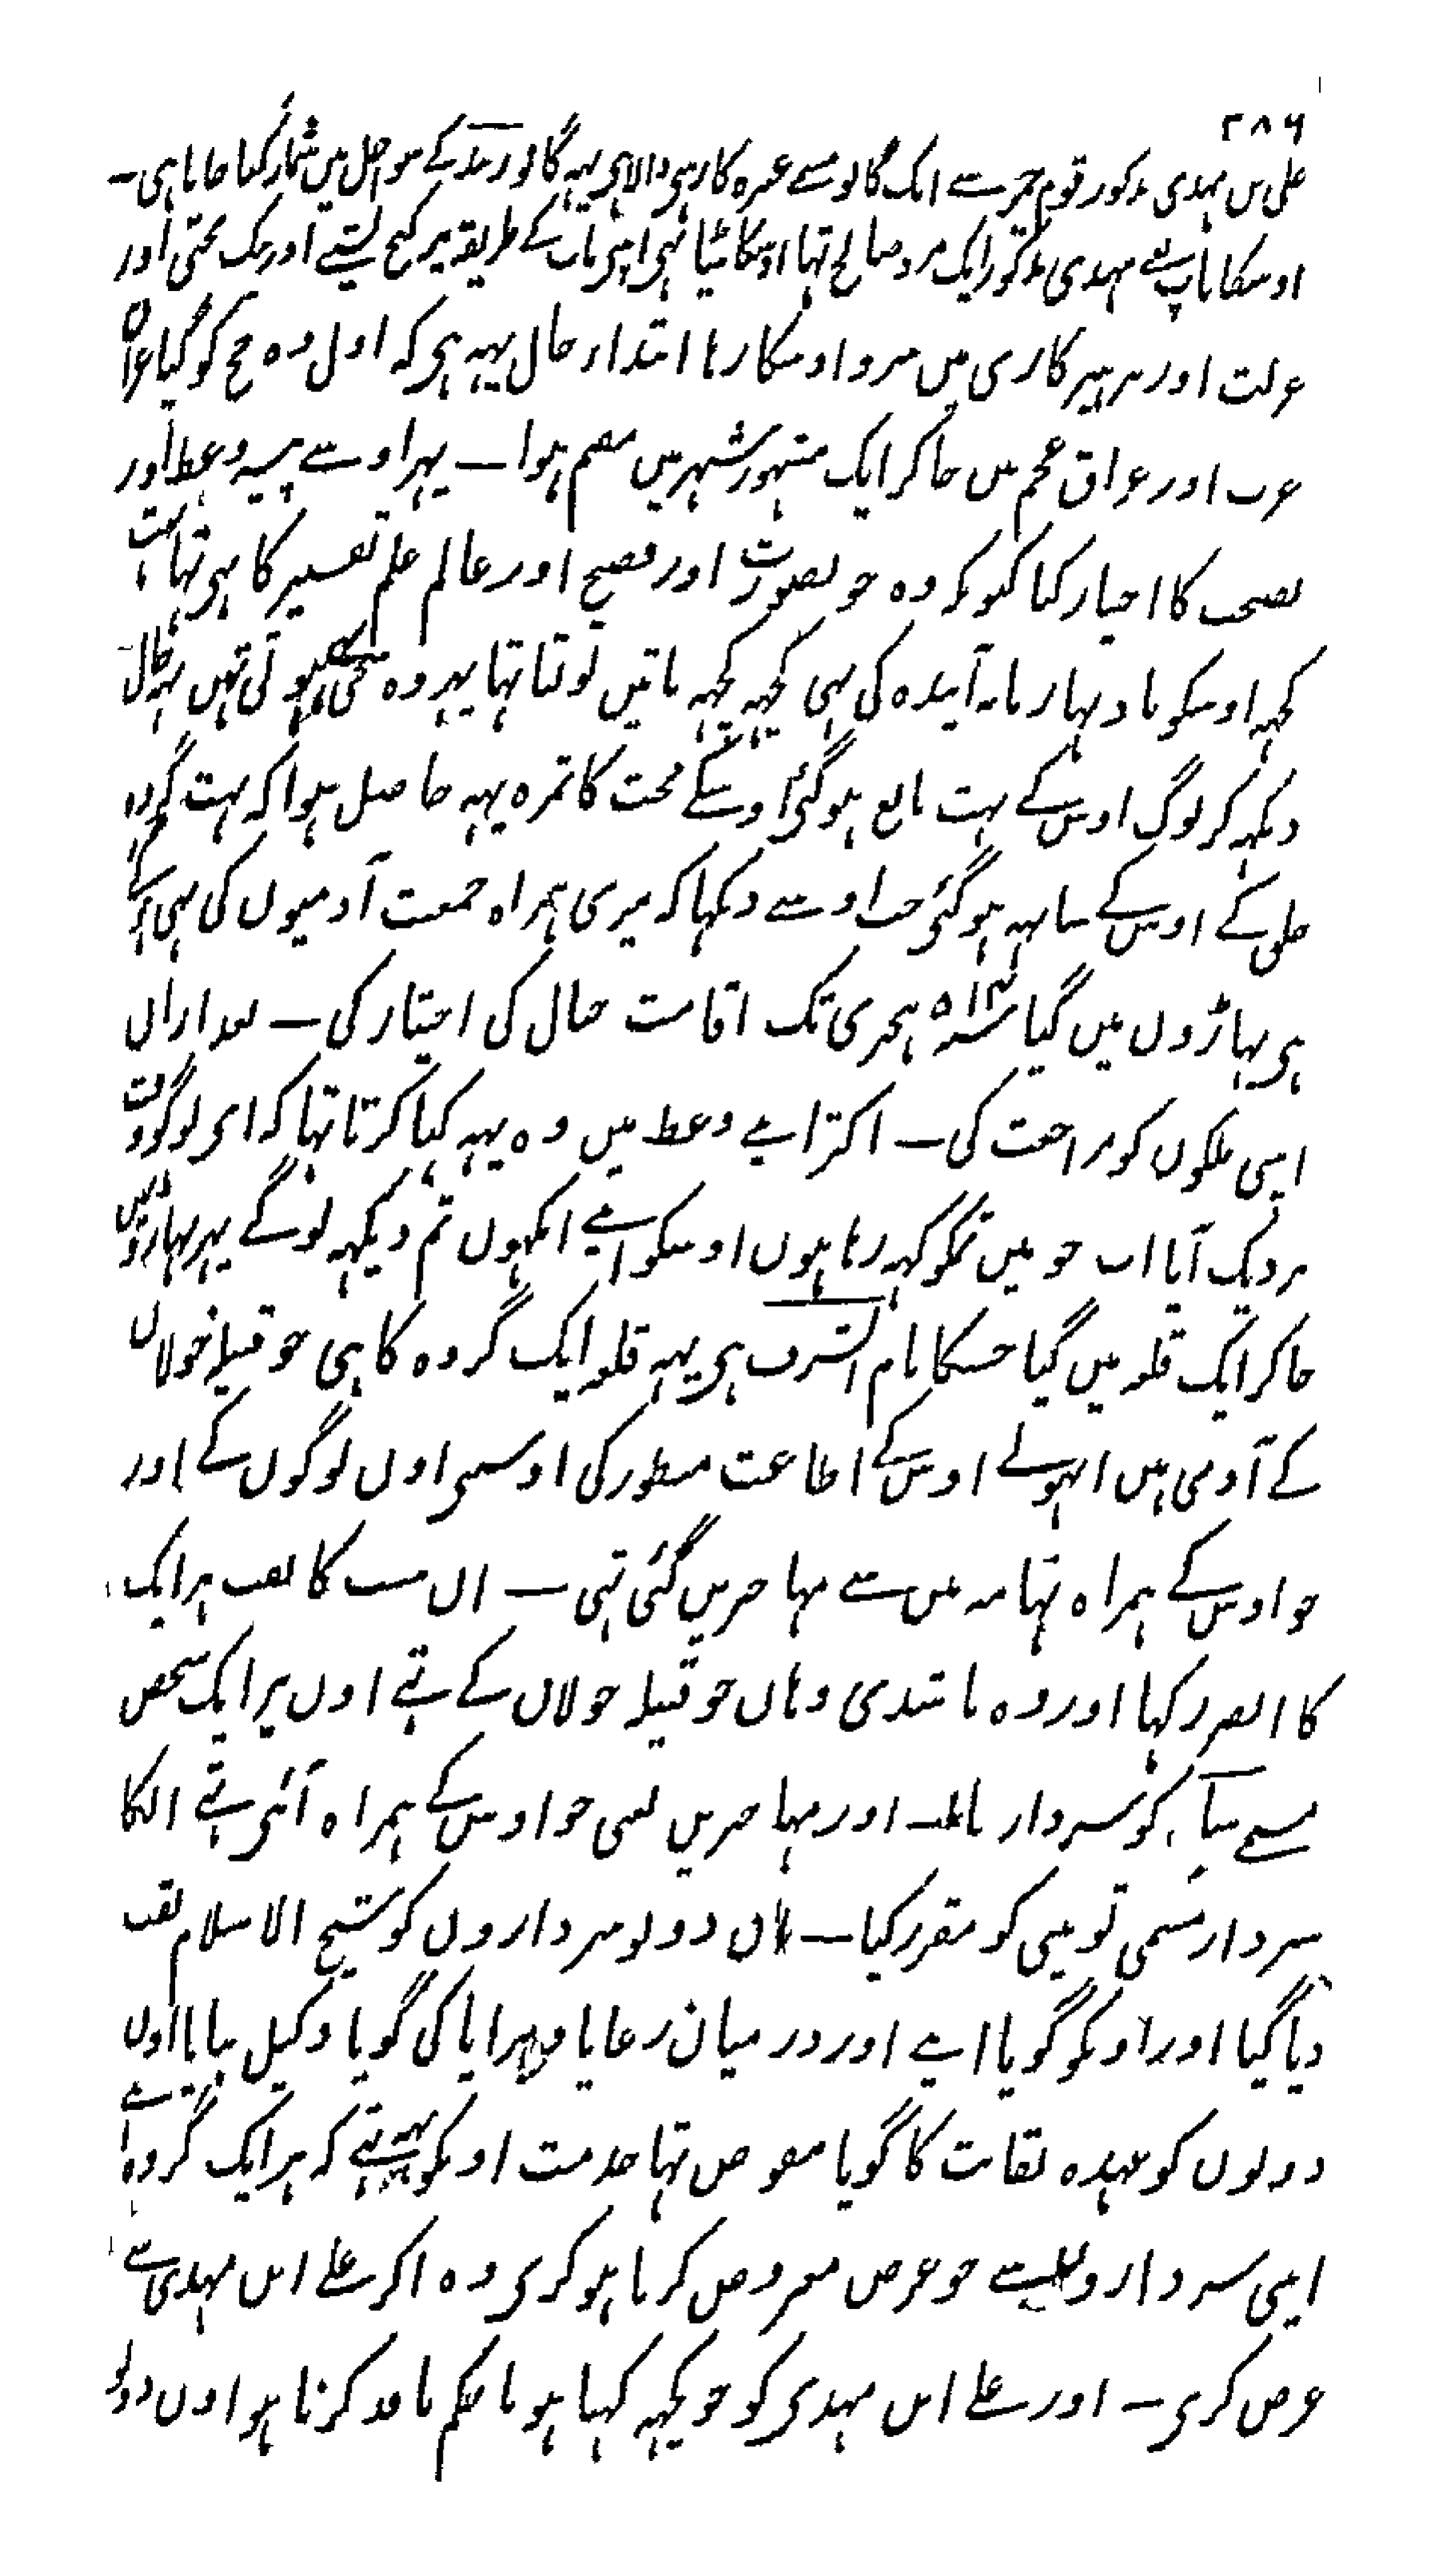 ۲۸۶
علی بن مہدی مذکور قوم حمیر سے ایک گانو مسمے عنبرہ کا رہنی والا ہی یہہ گانو زبید کے سواحل میں شمار کیا جاتا ہی ۔
اوسکا باپ یعنے مہدی مذکور ایک مرد صالح تہا اوسکا بیٹا بہی اپنی باپ کے طریقہ پر کنج نشینے اور نیک بختی اور
عزلت اور پرہیزکاری میں پیرو اوسکا رہا ابتدا حال یہہ ہی کہ اول وہ حج کو گیا
عرب اور عراق عجم میں جا کر ایک مشہور شہر میں مقیم ہوا ـ پہر اوسے پیشہ وعظ اور
نصیحت کا اختیار کیا کیونکہ وہ خوبصورت اور فصیح اور عالم علم تفسیر کا بہی تہا بہت
کچہہ اوسکو یاد تہا زمانہ آیندہ کی بہی کچہہ کچہہ باتیں بولتا تہا پہر وہ سچی ہوتی تہیں یہہ حال
دیکہہ کر لوگ اوس کے بہت تابع ہو گئی اوسکے محنت کا ثمرہ یہہ حاصل ہوا کہ بہت گروہ
خلق کے اوس کے ساتہہ ہو گئی جب اوسے دیکہا کہ میری ہمراہ جمعیت آدمیوں کی بہی
ہی پہاڑوں میں گیا سنہ ہجری تک اقامت جبال کی اختیار کی ـ بعد ازاں
اپنی ملکوں کو مراجعت کی ـ اکثر اپنے وعظ میں وہ یہہ کہا کرتا تہا کہ ای لوگو وقت
نزدیک آیا اب جو میں تمکو کہہ رہا ہوں اوسکو اپنے انکہوں تم دیکہہ لوگے پہر پہاڑوں میں
جا کر ایک قلعہ میں گیا جسکا نام الشرف ہی یہہ قلعہ ایک گروہ کا ہی جو قبیلہ خولان
کے آدمی ہیں انہوں نے اوس کے اطاعت منظور کی اوسنی اون لوگوں کے اور
جو اوس کے ہمراہ تہامہ میں سے مہاجرین گئی تہی ـ ان سب کا لقب ہر ایک
کا انصار رکہا اور وہ باشندی وہاں جو قبیلہ خولان کے تہے اون پر ایک شخص
مسمے سبا کو سردار بنایا ـ اور مہاجرین یعنی جو اوس کے ہمراہ آئی تہے انکا
سردار مسمی تویتی کو مقرر کیا ـ ان دونو سرداروں کو شیخ الاسلام لقب
دیا گیا اور اونکو گویا اپنے اور درمیان رعایا و برایا کی گویا وکیل بنایا اون
دونوں کو عہدہ نقابت کا گویا مفوض تہا خدمت اونکو یہہ تہے کہ ہر ایک گروہ اپنے
اپنی سرداروں سے جو عرض معروض کرنا ہو کری وہ اکر علی ابن مہدی سے
عرض کری ـ اور علی ابن مہدی کو جو کچہہ کہنا ہو یا حکم نافذ کرنا ہو اون دونو